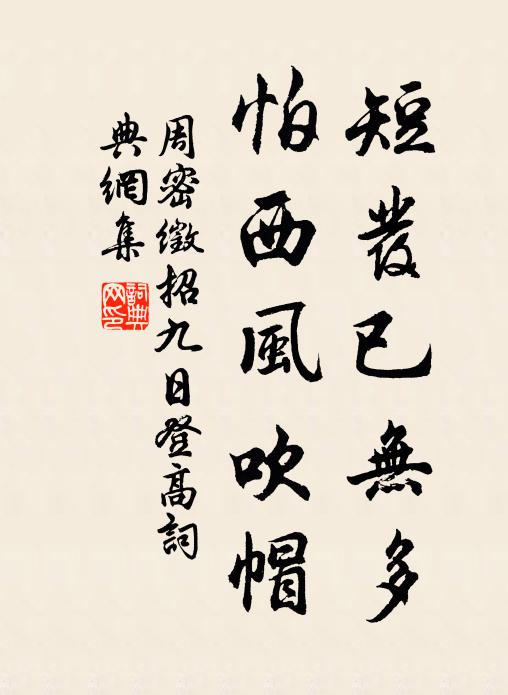 短發已無多
怕西風吹帽
周密徵招九日登高詞
典網集
詞典网印